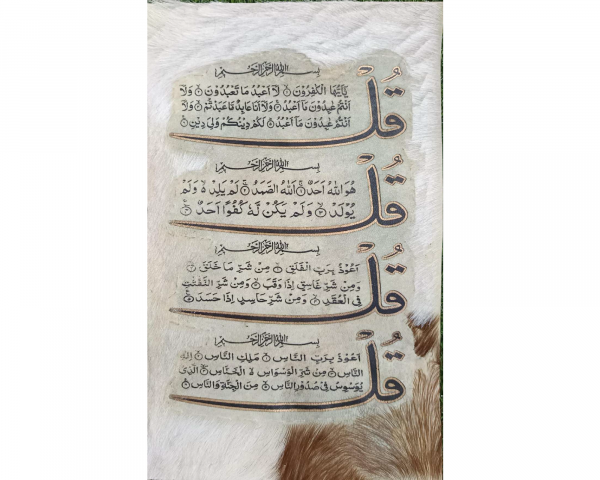 بسم الله الرحمن الرحيم
قُلْ يٰٓاَيُّهَا الْكٰفِرُوْنَ ۝ لَآ اَعْبُدُ مَا تَعْبُدُوْنَ ۝ وَلَآ
اَنْتُمْ عٰبِدُوْنَ مَآ اَعْبُدُ ۝ وَلَآ اَنَا عَابِدٌ مَّا عَبَدْتُّمْ ۝ وَلَآ
اَنْتُمْ عٰبِدُوْنَ مَآ اَعْبُدُ ۝ لَكُمْ دِيْنُكُمْ وَلِيَ دِيْنِ ۝
بسم الله الرحمن الرحيم
قُلْ هُوَ اللهُ اَحَدٌ ۝ اَللهُ الصَّمَدُ ۝ لَمْ يَلِدْ ۙ وَلَمْ
يُوْلَدْ ۝ وَلَمْ يَكُنْ لَّهٗ كُفُوًا اَحَدٌ ۝
بسم الله الرحمن الرحيم
قُلْ اَعُوْذُ بِرَبِّ الْفَلَقِ ۝ مِنْ شَرِّ مَا خَلَقَ ۝
وَمِنْ شَرِّ غَاسِقٍ اِذَا وَقَبَ ۝ وَمِنْ شَرِّ النَّفّٰثٰتِ
فِي الْعُقَدِ ۝ وَمِنْ شَرِّ حَاسِدٍ اِذَا حَسَدَ ۝
بسم الله الرحمن الرحيم
قُلْ اَعُوْذُ بِرَبِّ النَّاسِ ۝ مَلِكِ النَّاسِ ۝ اِلٰهِ
النَّاسِ ۝ مِنْ شَرِّ الْوَسْوَاسِ ۙ الْخَنَّاسِ ۝ الَّذِيْ
يُوَسْوِسُ فِيْ صُدُوْرِ النَّاسِ ۝ مِنَ الْجِنَّةِ وَالنَّاسِ ۝